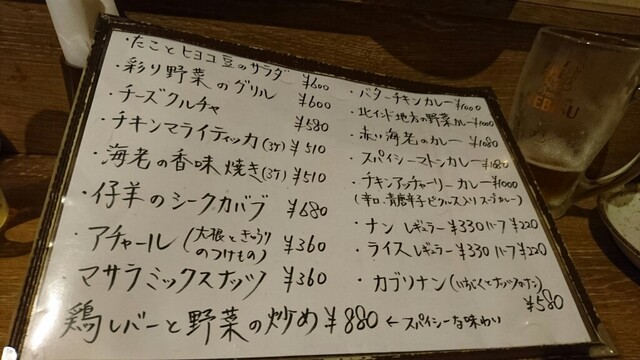 ・たことヒヨコ豆のサラダ ¥600
・彩り野菜のグリル ¥600
・チーズクルチャ ¥580
・チキンマライティッカ(3ケ) ¥510
・海老の香味焼き(3ケ) ¥510
・仔羊のシークカバブ ¥680
・アチャール(大根ときゅうりのつけもの) ¥360
・マサラミックスナッツ ¥360
鶏レバーと野菜の炒め ¥880 ←スパイシーな味わい
・バターチキンカレー ¥1000
・北インド地方の野菜カレー ¥1000
・赤い海老のカレー ¥1080
・スパイシーマトンカレー
・チキンアッチャーリーカレー ¥1000
(辛口、青唐辛子ピクルス入りスープカレー)
・ナン レギュラー ¥330 ハーフ ¥220
・ライス レギュラー ¥330 ハーフ ¥220
・カブリナン(いちじくとナッツのナン)
¥580